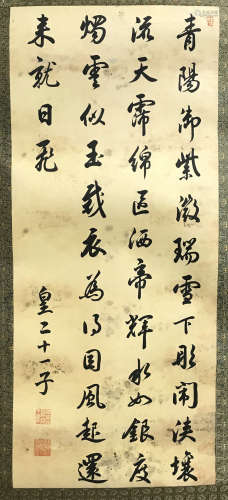 青陽御紫微瑞雪下彤闈浹壤
流天霈綿區洒帝輝水如銀度
燭雲似玉裁衣為得因風起還
來就日飛
皇二十一子